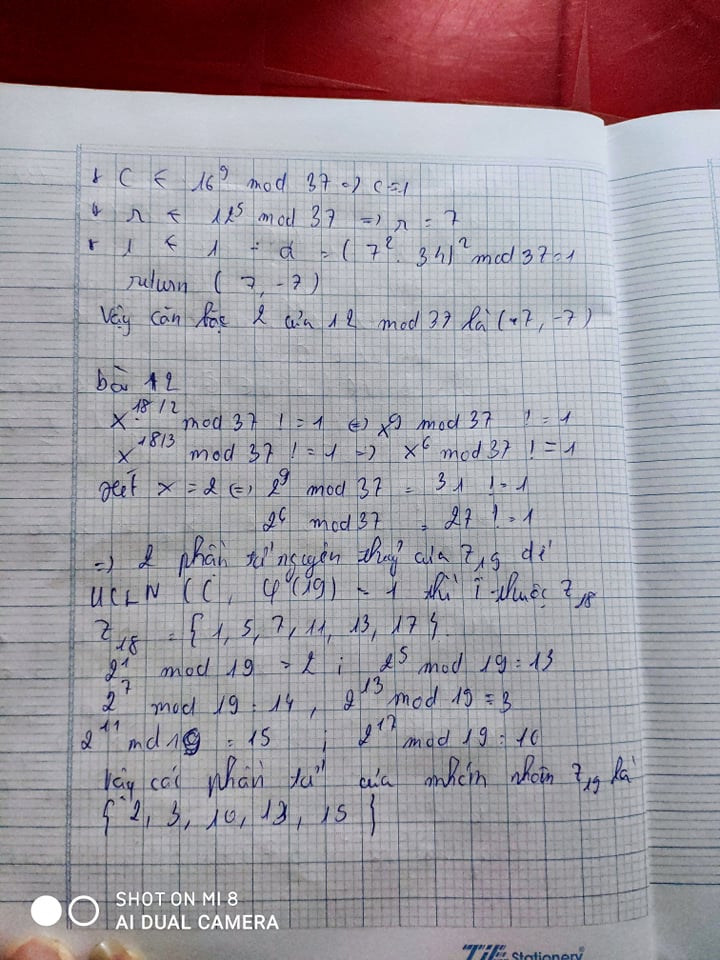 + C ← 16⁹ mod 37 => c=1
+ r ← 12⁵ mod 37 => r = 7
+ 1 ← 1 ÷ d = (7². 34)² mod 37=1
return (7, -7)
Vậy căn bậc 2 của 12 mod 37 là (+7, -7)
bài 12
x^18/2 mod 37 != 1 <=> x⁹ mod 37 != 1
x^18/3 mod 37 != 1 => x⁶ mod 37 != 1
Xét x = 2 <=> 2⁹ mod 37 = 31 != 1
2⁶ mod 37 = 27 != 1
=> 2 phần tử nguyên thuỷ của Z₁₉ để
UCLN (i, φ(19) = 1 thì i thuộc Z₁₈
Z₁₈ = { 1, 5, 7, 11, 13, 17 }.
2¹ mod 19 = 2 ; 2⁵ mod 19 = 13
2⁷ mod 19 = 14, 2¹³ mod 19 = 3
2¹¹ md 19 = 15 ; 2¹⁷ mod 19 = 10
Vậy các phần tử của nhóm nhân Z₁₉ là
{ 2, 3, 10, 13, 15 }
SHOT ON MI 8
AI DUAL CAMERA
Stationery